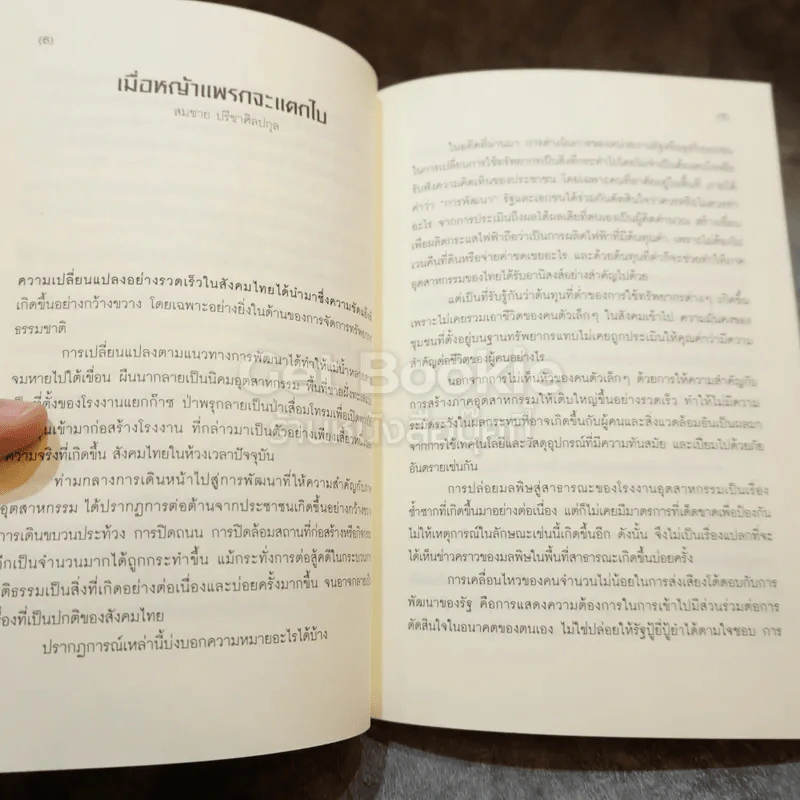 (6)
เมื่อหญ้าแพรกจะแตกใบ
สมชาย ปรีชาศิลปกุล
ความเปลี่ยนแปลงอย่างรวดเร็วในสังคมไทยได้นำมาซึ่งความขัดแย้งที่
เกิดขึ้นอย่างกว้างขวาง โดยเฉพาะอย่างยิ่งในด้านของการจัดการทรัพยากร
ธรรมชาติ
การเปลี่ยนแปลงตามแนวทางการพัฒนาได้ทำให้แม่น้ำหลาย
จมหายไปใต้เขื่อน ผืนนากลายเป็นนิคมอุตสาหกรรม พื้นที่ชายฝั่งทะเล
ที่ตั้งของโรงงานแยกก๊าซ ป่าพรุกลายเป็นป่าเสื่อมโทรมเพื่อเปิด
เข้ามาก่อสร้างโรงงาน ที่กล่าวมาเป็นตัวอย่างเพียงเสี้ยวหนึ่ง
ความจริงที่เกิดขึ้น สังคมไทยในห้วงเวลาปัจจุบัน
ท่ามกลางการเดินหน้าไปสู่การพัฒนาที่ให้ความสำคัญกับภาค
อุตสาหกรรม ได้ปรากฏการต่อต้านจากประชาชนเกิดขึ้นอย่างกว้างขวาง
การเดินขบวนประท้วง การปิดถนน การปิดล้อมสถานที่ก่อสร้างหรือกิจกรรม
อีกเป็นจำนวนมากได้ถูกกระทำขึ้น แม้กระทั่งการต่อสู้คดีในกระบวนการ
ยุติธรรมเป็นสิ่งที่เกิดอย่างต่อเนื่องและบ่อยครั้งมากขึ้น จนอาจกลายเป็น
เรื่องที่เป็นปกติของสังคมไทย
ปรากฏการณ์เหล่านี้บ่งบอกความหมายอะไรได้บ้าง
ในอดีตที่ผ่านมา การดำเนินการของหน่วยงานรัฐหรือธุรกิจเอกชน
ในการเปลี่ยนการใช้ทรัพยากรเป็นสิ่งที่กระทำไปโดยไม่จำเป็นต้อง
รับฟังความคิดเห็นของประชาชน โดยเฉพาะคนที่อาศัยอยู่ในพื้นที่ ภายใต้
คำว่า "การพัฒนา" รัฐและเอกชนได้ร่วมกันตัดสินใจว่าควรหรือไม่ควรทำ
อะไร จากการประเมินถึงผลได้ผลเสียที่ตนเองเป็นผู้คิดคำนวณ สร้างเขื่อน
เพื่อผลิตกระแสไฟฟ้าถือว่าเป็นการผลิตไฟฟ้าที่มีต้นทุนต่ำ เพราะไม่ต้องไป
เวนคืนที่ดินหรือจ่ายค่าชดเชยอะไร และด้วยต้นทุนที่ต่ำก็จะช่วยทำให้ภาค
อุตสาหกรรมของไทยได้รับอานิสงส์อย่างสำคัญไปด้วย
แต่เป็นที่รับรู้กันว่าต้นทุนที่ต่ำของการใช้ทรัพยากรต่างๆ เกิดขึ้น
เพราะไม่เคยรวมเอาชีวิตของคนตัวเล็กๆ ในสังคมเข้าไป ความมั่นคงของ
ชุมชนที่ตั้งอยู่บนฐานทรัพยากรแทบไม่เคยถูกประเมินให้คุณค่าว่ามีความ
สำคัญต่อชีวิตของผู้คนอย่างไร
นอกจากการไม่เห็นหัวของคนตัวเล็กๆ ด้วยการให้ความสำคัญกับ
การสร้างภาคอุตสาหกรรมให้เติบใหญ่ขึ้นอย่างรวดเร็ว ทำให้ไม่มีความ
ระมัดระวังในผลกระทบที่อาจเกิดขึ้นกับผู้คนและสิ่งแวดล้อมอันเป็นผลมา
จากการใช้เทคโนโลยีและวัสดุอุปกรณ์ที่มีความทันสมัย และเปี่ยมไปด้วยภัย
อันตรายเช่นกัน
การปล่อยมลพิษสู่สาธารณะของโรงงานอุตสาหกรรมเป็นเรื่อง
ซ้ำซากที่เกิดขึ้นมาอย่างต่อเนื่อง แต่ก็ไม่เคยมีมาตรการที่เด็ดขาดเพื่อป้องกัน
ไม่ให้เหตุการณ์ในลักษณะเช่นนี้เกิดขึ้นอีก ดังนั้น จึงไม่เป็นเรื่องแปลกที่จะ
ได้เห็นข่าวคราวของมลพิษในพื้นที่สาธารณะเกิดขึ้นบ่อยครั้ง
การเคลื่อนไหวของคนจำนวนไม่น้อยในการส่งเสียงโต้ตอบกับการ
พัฒนาของรัฐ คือการแสดงความต้องการในการเข้าไปมีส่วนร่วมต่อการ
ตัดสินใจในอนาคตของตนเอง ไม่ใช่ปล่อยให้รัฐปู้ยี่ปู้ยำได้ตามใจชอบ การ
Get Bookie
ร้านหนังสือบุ๊คกี้